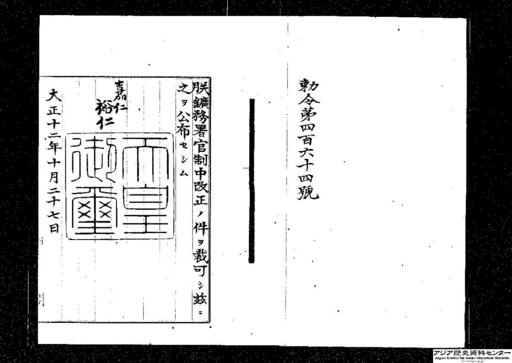 勅令第四百六十四號
朕鑛務署官制中改正ノ件ヲ裁可シ茲ニ
之ヲ公布セシム
嘉仁
裕仁
天皇
御璽
大正十二年十月二十七日
アジア歴史資料センター
Japan Center for Asian Historical Records